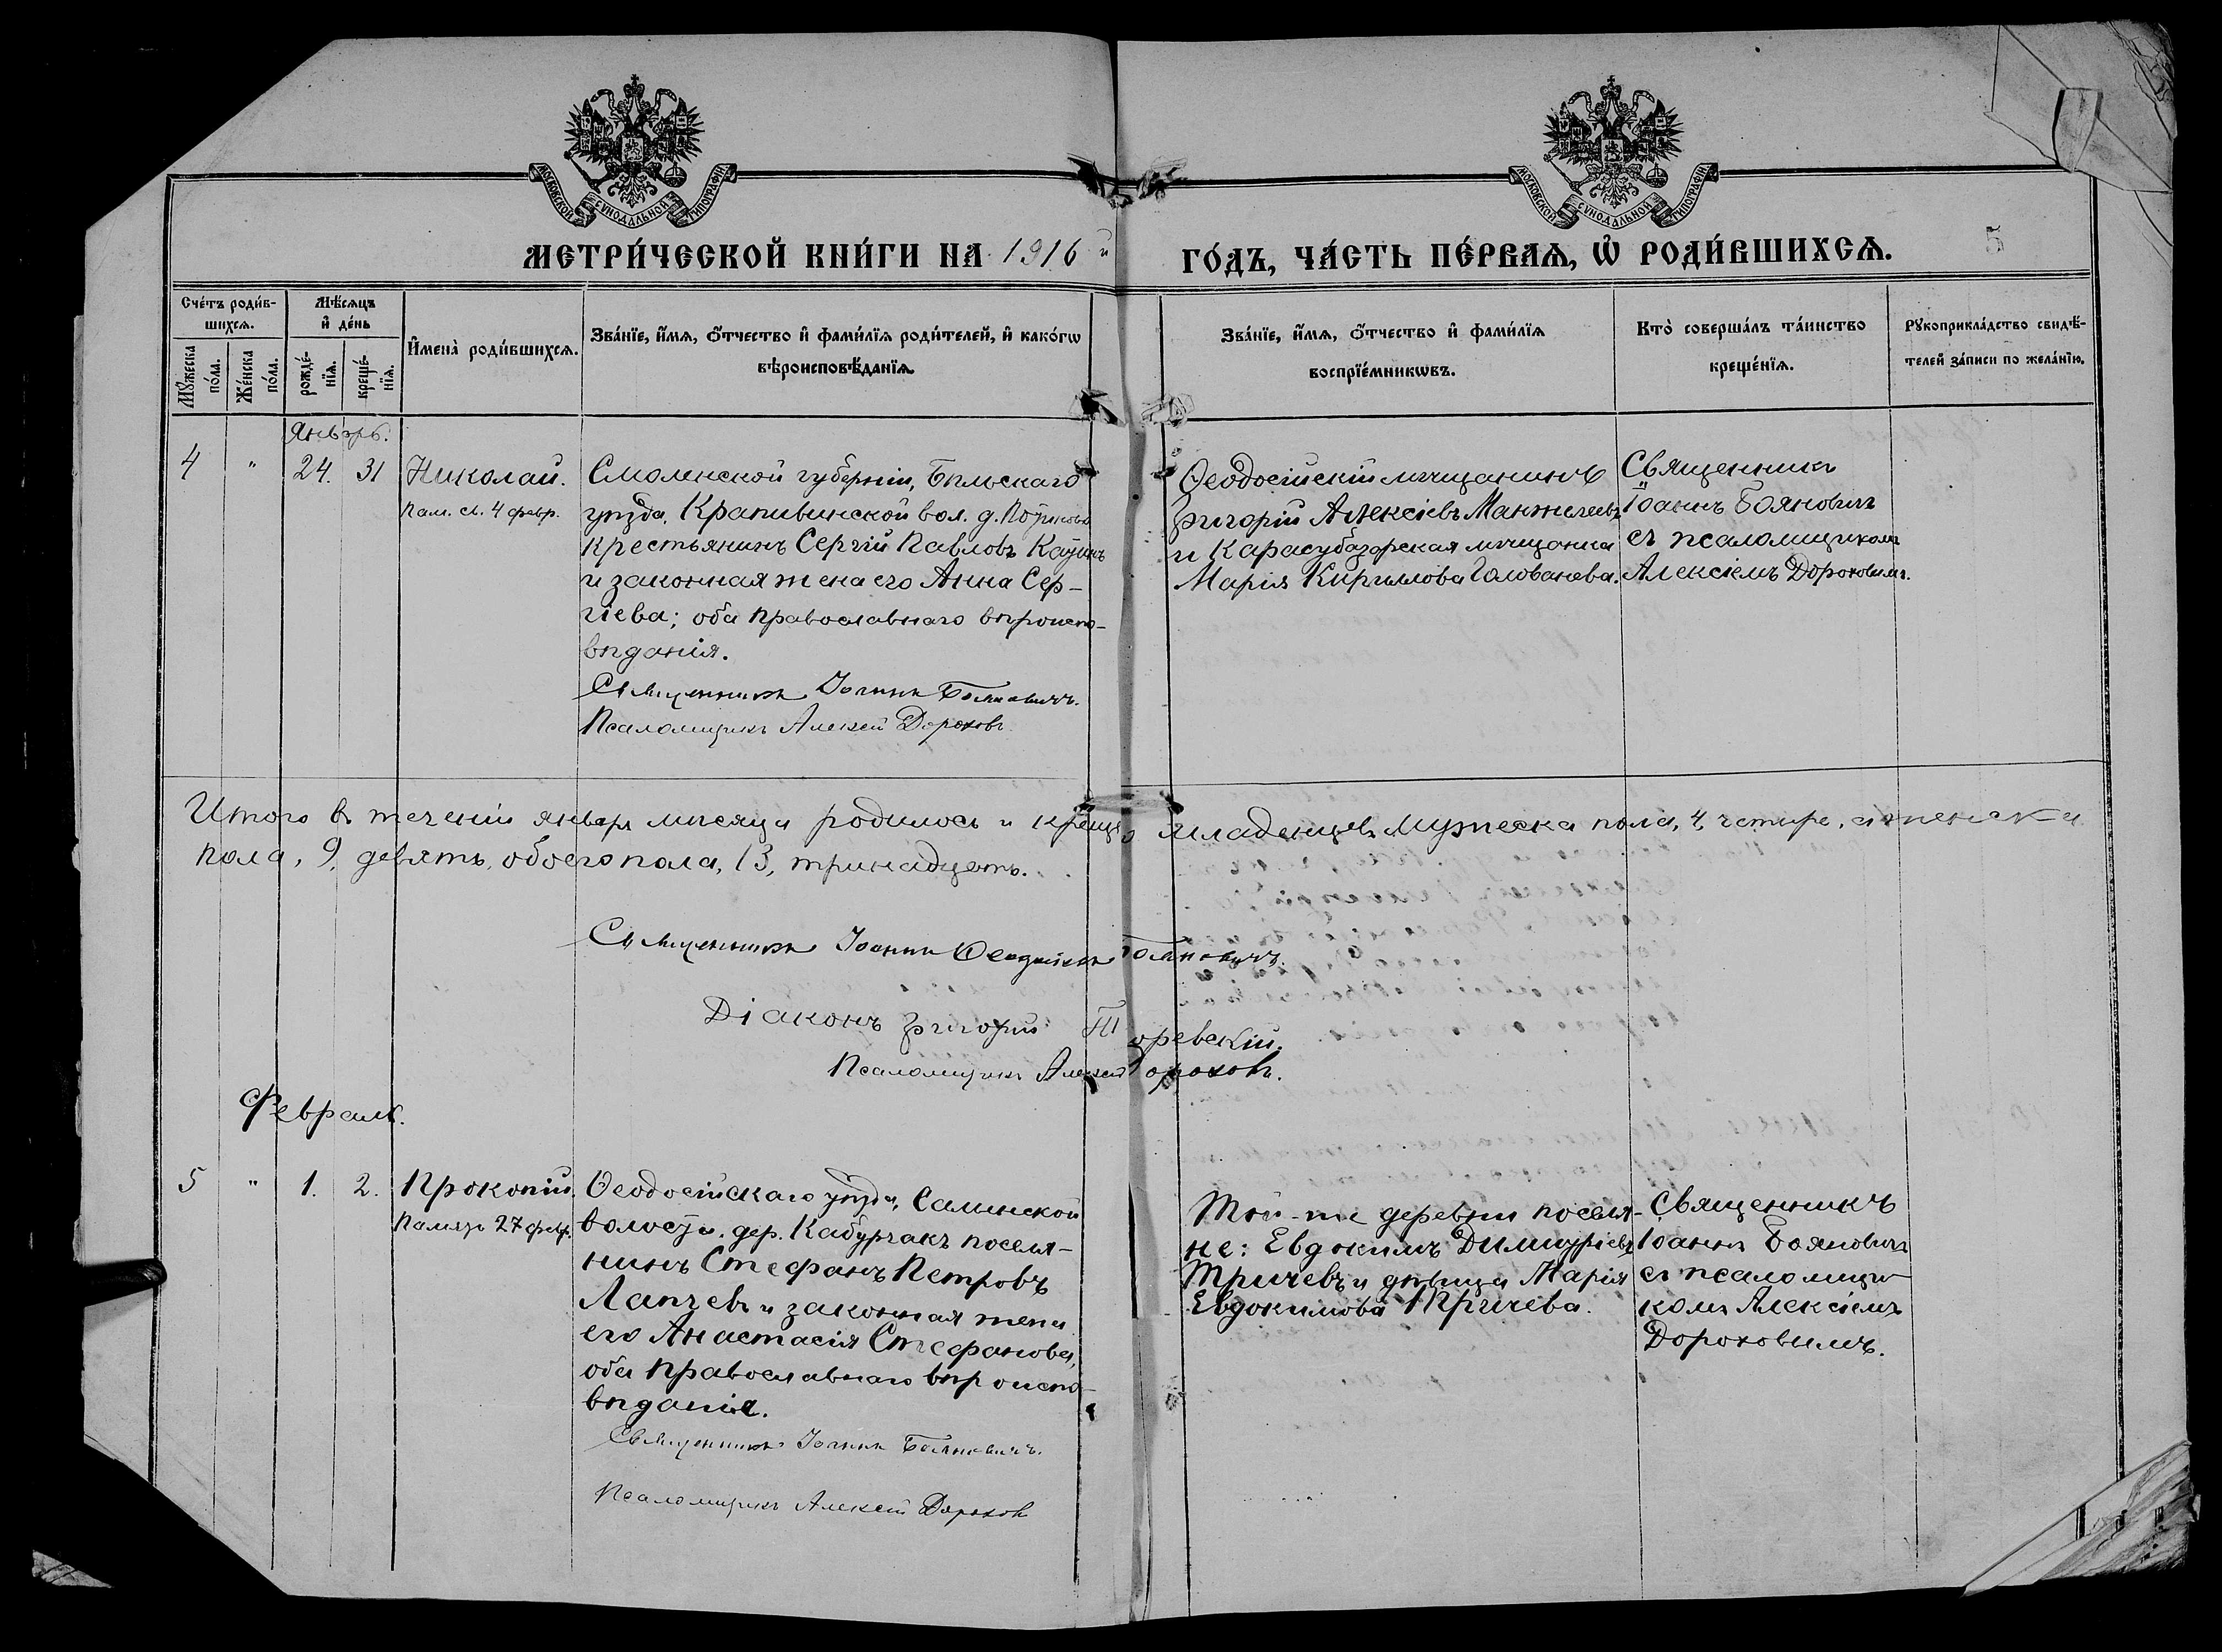 МОСКОВСКОЙ СѴНОДАЛЬНОЙ ТИПОГРАФІИ
МОСКОВСКОЙ СѴНОДАЛЬНОЙ ТИПОГРАФІИ
МЕТРИ́ЧЕСКОЙ КНИ́ГИ НА 1916 й ГО́ДЪ, ЧА́СТЬ ПЕ́РВАѦ, Ѡ҆ РОДИ́ВШИХСѦ.
5
Сче́тъ роди́в-
шихсѧ.
Мꙋ́жеска по́ла.
Же́нска по́ла.
Мѣ́сѧцъ
и҆ де́нь
рожде́-
нїѧ.
креще́-
нїѧ.
И҆мена̀ роди́вшихсѧ.
Зва́нїе, и҆́мѧ, ѻ҆́тчество и҆ фами́лїѧ роди́телей, и҆ како́гѡ
вѣроисповѣ́данїѧ.
Зва́нїе, и҆́мѧ, ѻ҆́тчество и҆ фами́лїѧ
воспрїе́мникѡвъ.
Кто̀ соверша́лъ та́инство
креще́нїѧ.
Рꙋкоприкла́дство свидѣ́-
телей за́писи по жела́нїю.
Январь.
4 " 24. 31 Николай.
Пам. св. 4 февр.
Смоленской губерніи, Бѣльскаго
уѣзда, Крапивинской вол. д.
крестьянинъ Сергій Павловъ
и законная жена его Анна Сер-
гіева; оба православнаго вѣроиспо-
вѣданія.
Священникъ Іоаннъ Бояновичъ.
Псаломщикъ Алексей Дороховъ
Ѳеодосійскій мѣщанинъ
Григорій Алексіевъ
и Карасубазарская мѣщанка
Марія Кириллова Голованева.
Священникъ
Іоаннъ Бояновичъ
съ псаломщикомъ
Алексіемъ Дороховымъ.
Итого въ теченіи января мѣсяца родилось и крещено младенцевъ мужеска пола, 4, четыре, а женска
пола, 9, девять, обоего пола, 13, тринадцать.
Священникъ Іоаннъ Бояновичъ.
Діаконъ Григорій
Псаломщикъ Алексей Дороховъ.
Февраль.
5 " 1. 2. Прокопій.
Память 27 февр.
Ѳеодосійскаго уѣзда, Салынской
волости, дер. Кабурчакъ поселя-
нинъ Стефанъ Петровъ
Лапчевъ и законная жена
его Анастасія Стефанова,
оба православнаго вѣроиспо-
вѣданія.
Священникъ Іоаннъ Бояновичъ.
Псаломщикъ Алексей Дорохов
Той-же деревни поселя-
не: Евдокимъ Димитріевъ
и дѣвица Марія
Евдокимова
Священникъ
Іоаннъ Бояновичъ
съ псаломщи-
комъ Алексіемъ
Дороховымъ.